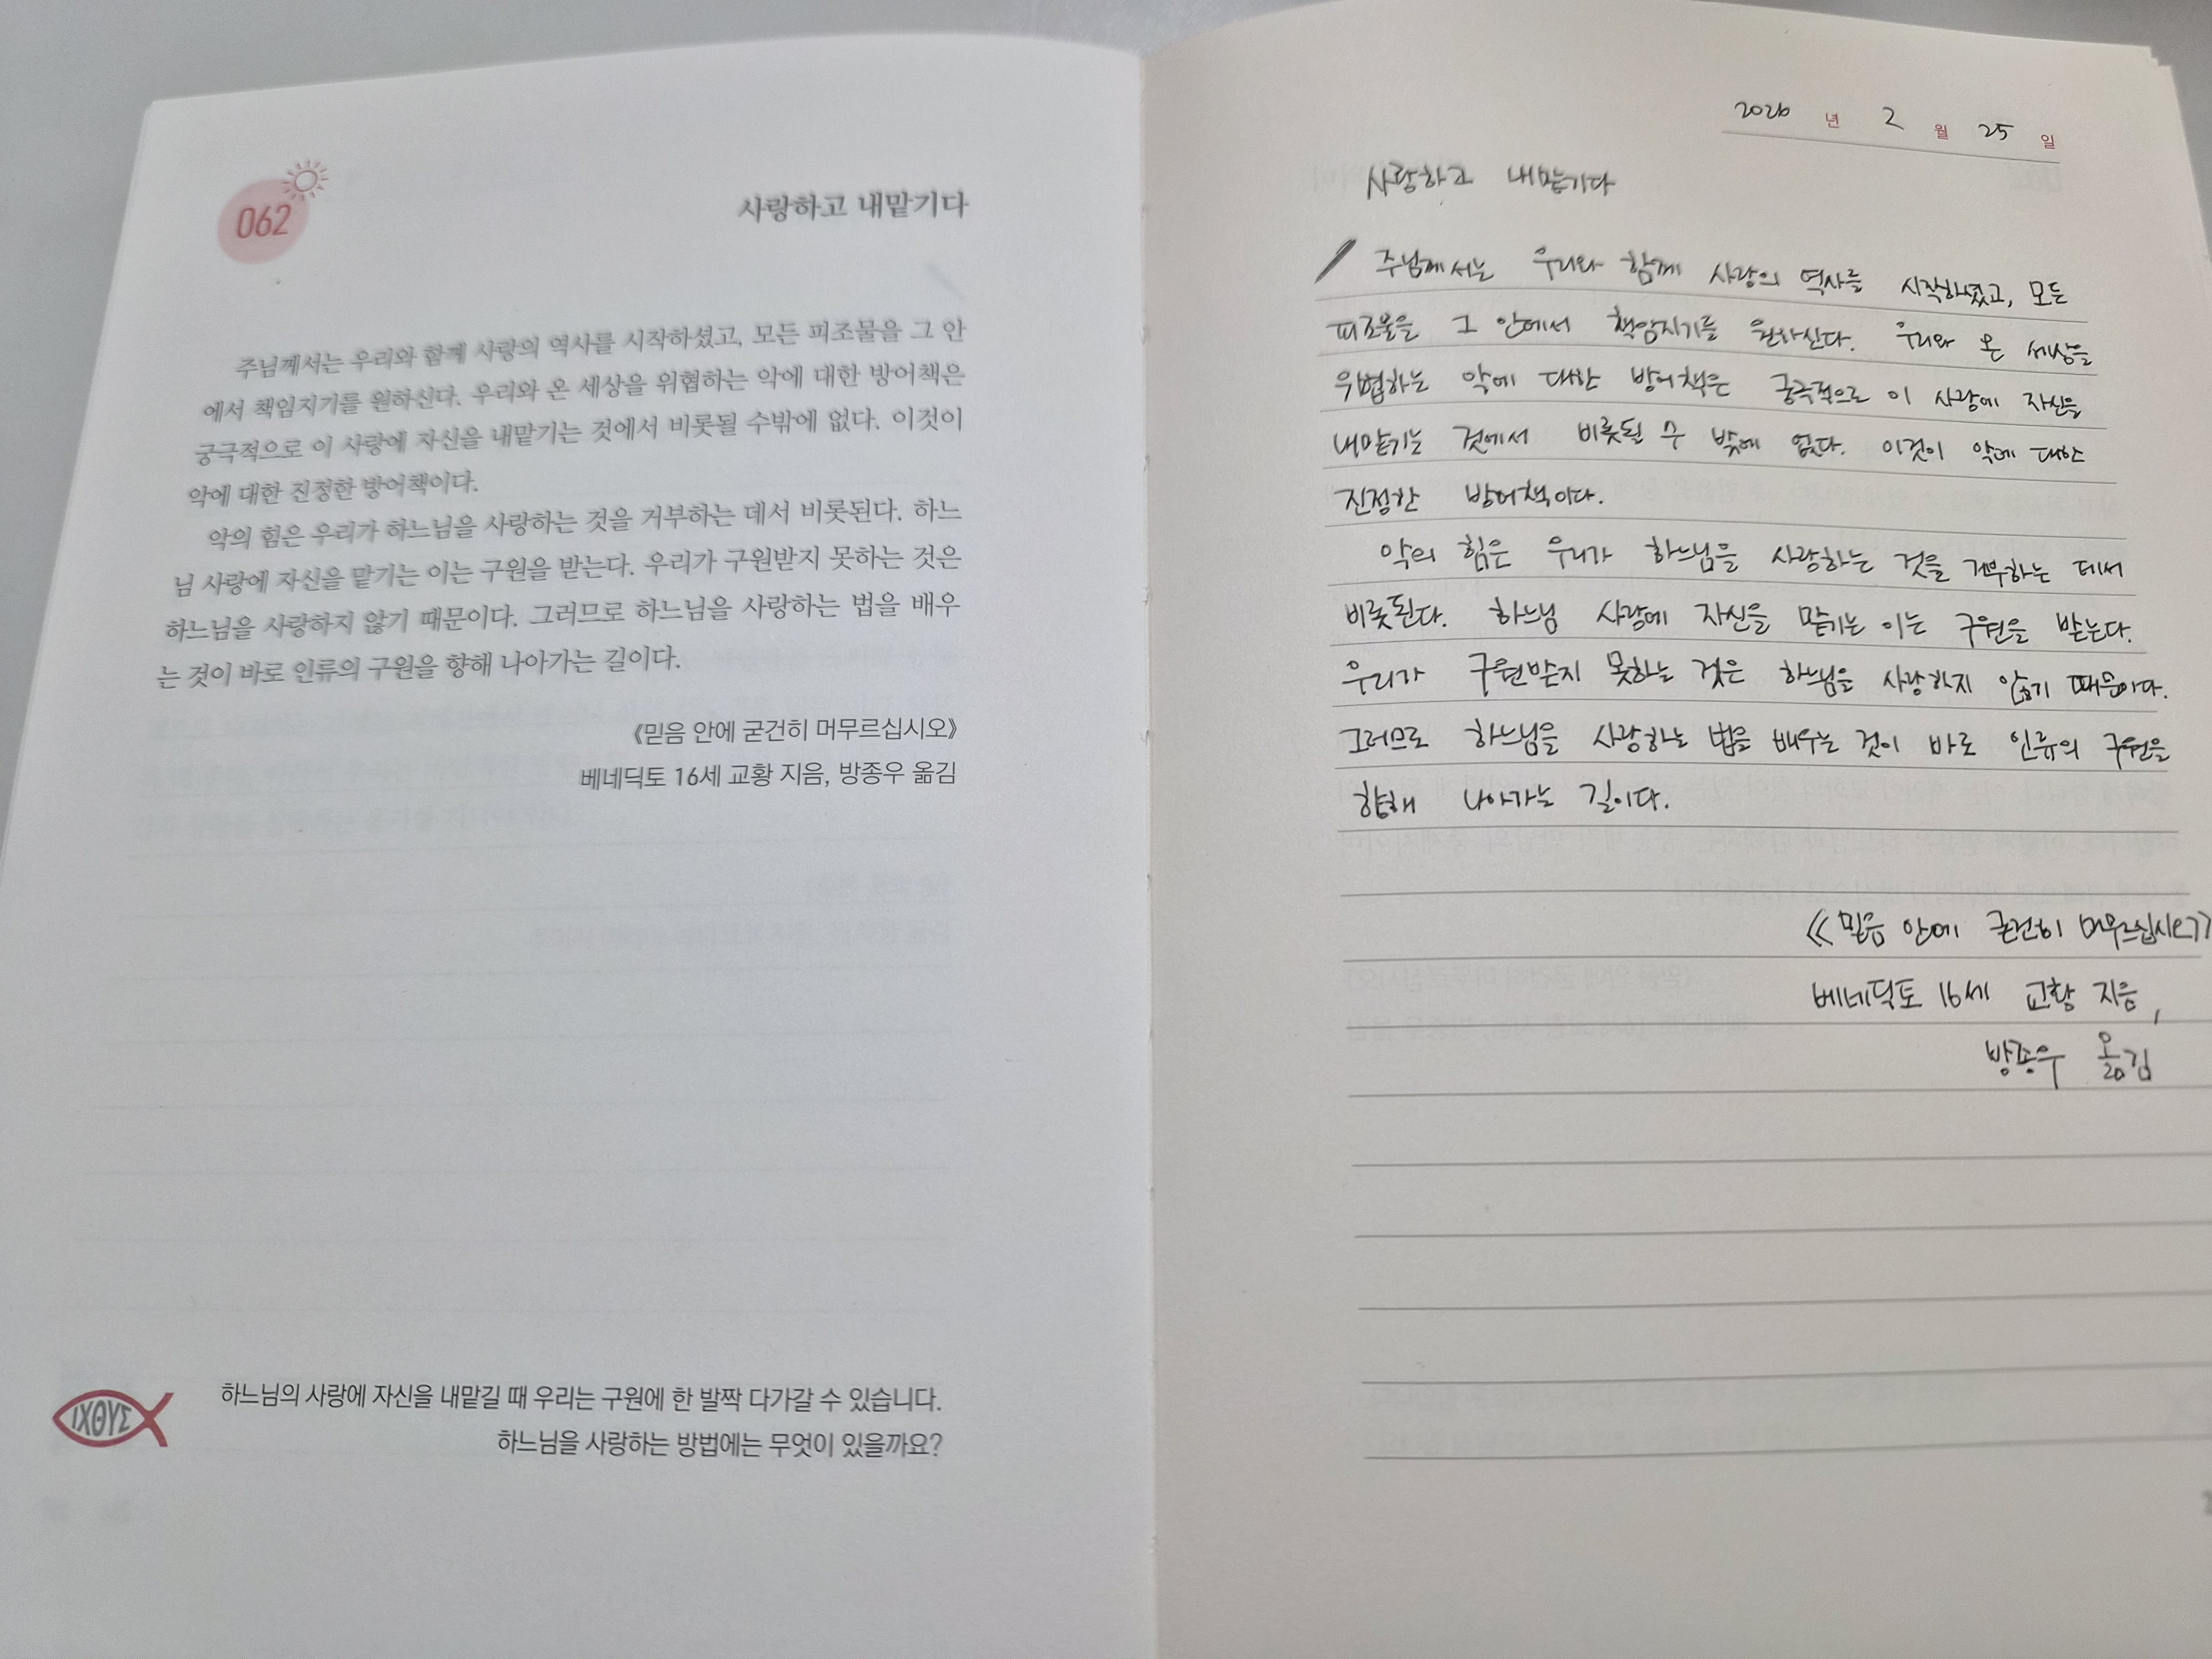 062
사랑하고 내맡기다
주님께서는 우리와 함께 사랑의 역사를 시작하셨고, 모든 피조물을 그 안
에서 책임지기를 원하신다. 우리와 온 세상을 위협하는 악에 대한 방어책은
궁극적으로 이 사랑에 자신을 내맡기는 것에서 비롯될 수밖에 없다. 이것이
악에 대한 진정한 방어책이다.
악의 힘은 우리가 하느님을 사랑하는 것을 거부하는 데서 비롯된다. 하느
님 사랑에 자신을 맡기는 이는 구원을 받는다. 우리가 구원받지 못하는 것은
하느님을 사랑하지 않기 때문이다. 그러므로 하느님을 사랑하는 법을 배우
는 것이 바로 인류의 구원을 향해 나아가는 길이다.
《믿음 안에 굳건히 머무르십시오》
베네딕토 16세 교황 지음, 방종우 옮김
ΙΧΘΥΣ
하느님의 사랑에 자신을 내맡길 때 우리는 구원에 한 발짝 다가갈 수 있습니다.
하느님을 사랑하는 방법에는 무엇이 있을까요?
2026 년 2 월 25 일
사랑하고 내맡기다
주님께서는 우리와 함께 사랑의 역사를 시작하셨고, 모든
피조물을 그 안에서 책임지기를 원하신다. 우리와 온 세상을
위협하는 악에 대한 방어책은 궁극적으로 이 사랑에 자신을
내맡기는 것에서 비롯될 수 밖에 없다. 이것이 악에 대한
진정한 방어책이다.
악의 힘은 우리가 하느님을 사랑하는 것을 거부하는 데서
비롯된다. 하느님 사랑에 자신을 맡기는 이는 구원을 받는다.
우리가 구원받지 못하는 것은 하느님을 사랑하지 않기 때문이다.
그러므로 하느님을 사랑하는 법을 배우는 것이 바로 인류의 구원을
향해 나아가는 길이다.
《믿음 안에 굳건히 머무르십시오》
베네딕토 16세 교황 지음,
방종우 옮김